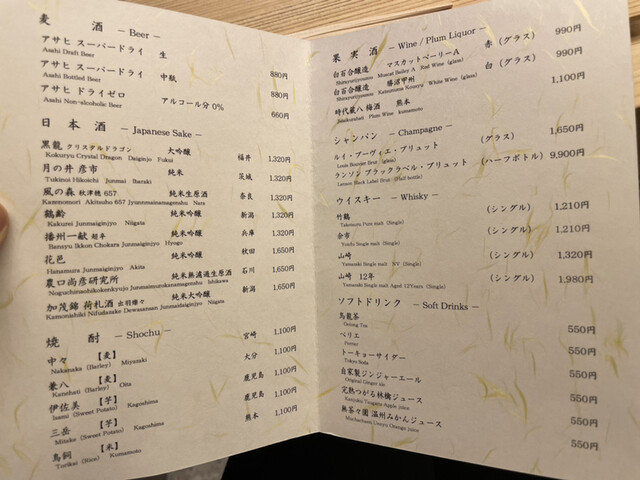 麦 酒 － Beer －
アサヒ スーパードライ 生
Asahi Draft Beer
880円
アサヒ スーパードライ 中瓶
Asahi Bottled Beer
880円
アサヒ ドライゼロ アルコール分 0%
Asahi Non-alcoholic Beer
660円
日 本 酒 － Japanese Sake －
黒龍 クリスタルドラゴン 大吟醸 福井 1,320円
Kokuryu Crystal Dragon Daiginjo Fukui
月の井 彦市 純米 茨城 1,320円
Tukinoi Hikoichi Junmai Ibaraki
風の森 秋津穂 657 純米生原酒 奈良 1,320円
Kazenomori Akitsuho 657 Nara
鶴齢 純米吟醸 新潟 1,320円
Kakurei Junmaiginjyo Niigata
播州一献 超辛 純米吟醸 兵庫 1,320円
Bansyu Ikkon Chokara Junmaiginjyo Hyogo
花邑 純米吟醸 秋田 1,650円
Hanamura Junmaiginjyo Akita
農口尚彦研究所 純米無濾過生原酒 石川 1,650円
Ishikawa
加茂錦 荷札酒 純米大吟醸 新潟 1,650円
Kamonishiki Nifudazake Niigata
焼 酎 － Shochu －
中々 【麦】 宮崎 1,100円
Nakanaka (Barley) Miyazaki
兼八 【麦】 大分 1,100円
Kanehati (Barley) Oita
伊佐美 【芋】 鹿児島 1,100円
Isami (Sweet Potato) Kagoshima
三岳 【芋】 鹿児島 1,100円
Mitake (Sweet Potato) Kagoshima
鳥飼 【米】 熊本 1,100円
Torikai (Rice) Kumamoto
果 実 酒 － Wine / Plum Liquor －
白百合醸造 マスカットベーリーA 赤 (グラス) 990円
Shirayurijyouzou Muscat Bailey A Red Wine (glass)
白百合醸造 勝沼甲州 白 (グラス) 990円
Shirayurijyouzou Katsunuma Kousyu White Wine (glass)
時代蔵八 梅酒 熊本 1,100円
Plum Wine kumamoto
シャンパン － Champagne －
ルイ・ブーヴィエ・ブリュット (グラス) 1,650円
Brut (glass)
ランソン ブラックラベル・ブリュット (ハーフボトル) 9,900円
Lanson Black Label Brut (Half bottle)
ウイスキー － Whisky －
竹鶴 (シングル) 1,210円
Taketsuru Pure malt (Single)
余市 (シングル) 1,210円
Yoichi Single malt (Single)
山崎 (シングル) 1,320円
Yamazaki Single malt NV (Single)
山崎 12年 (シングル) 1,980円
Yamazaki Single malt Aged 12Years (Single)
ソフトドリンク － Soft Drinks －
烏龍茶 550円
Oolong Tea
ペリエ 550円
Perrier
トーキョーサイダー 550円
Tokyo Soda
自家製ジンジャーエール 550円
Original Ginger ale
完熟つがる林檎ジュース 550円
Apple juice
無茶々園 温州みかんジュース 550円
Orange Juice
550円